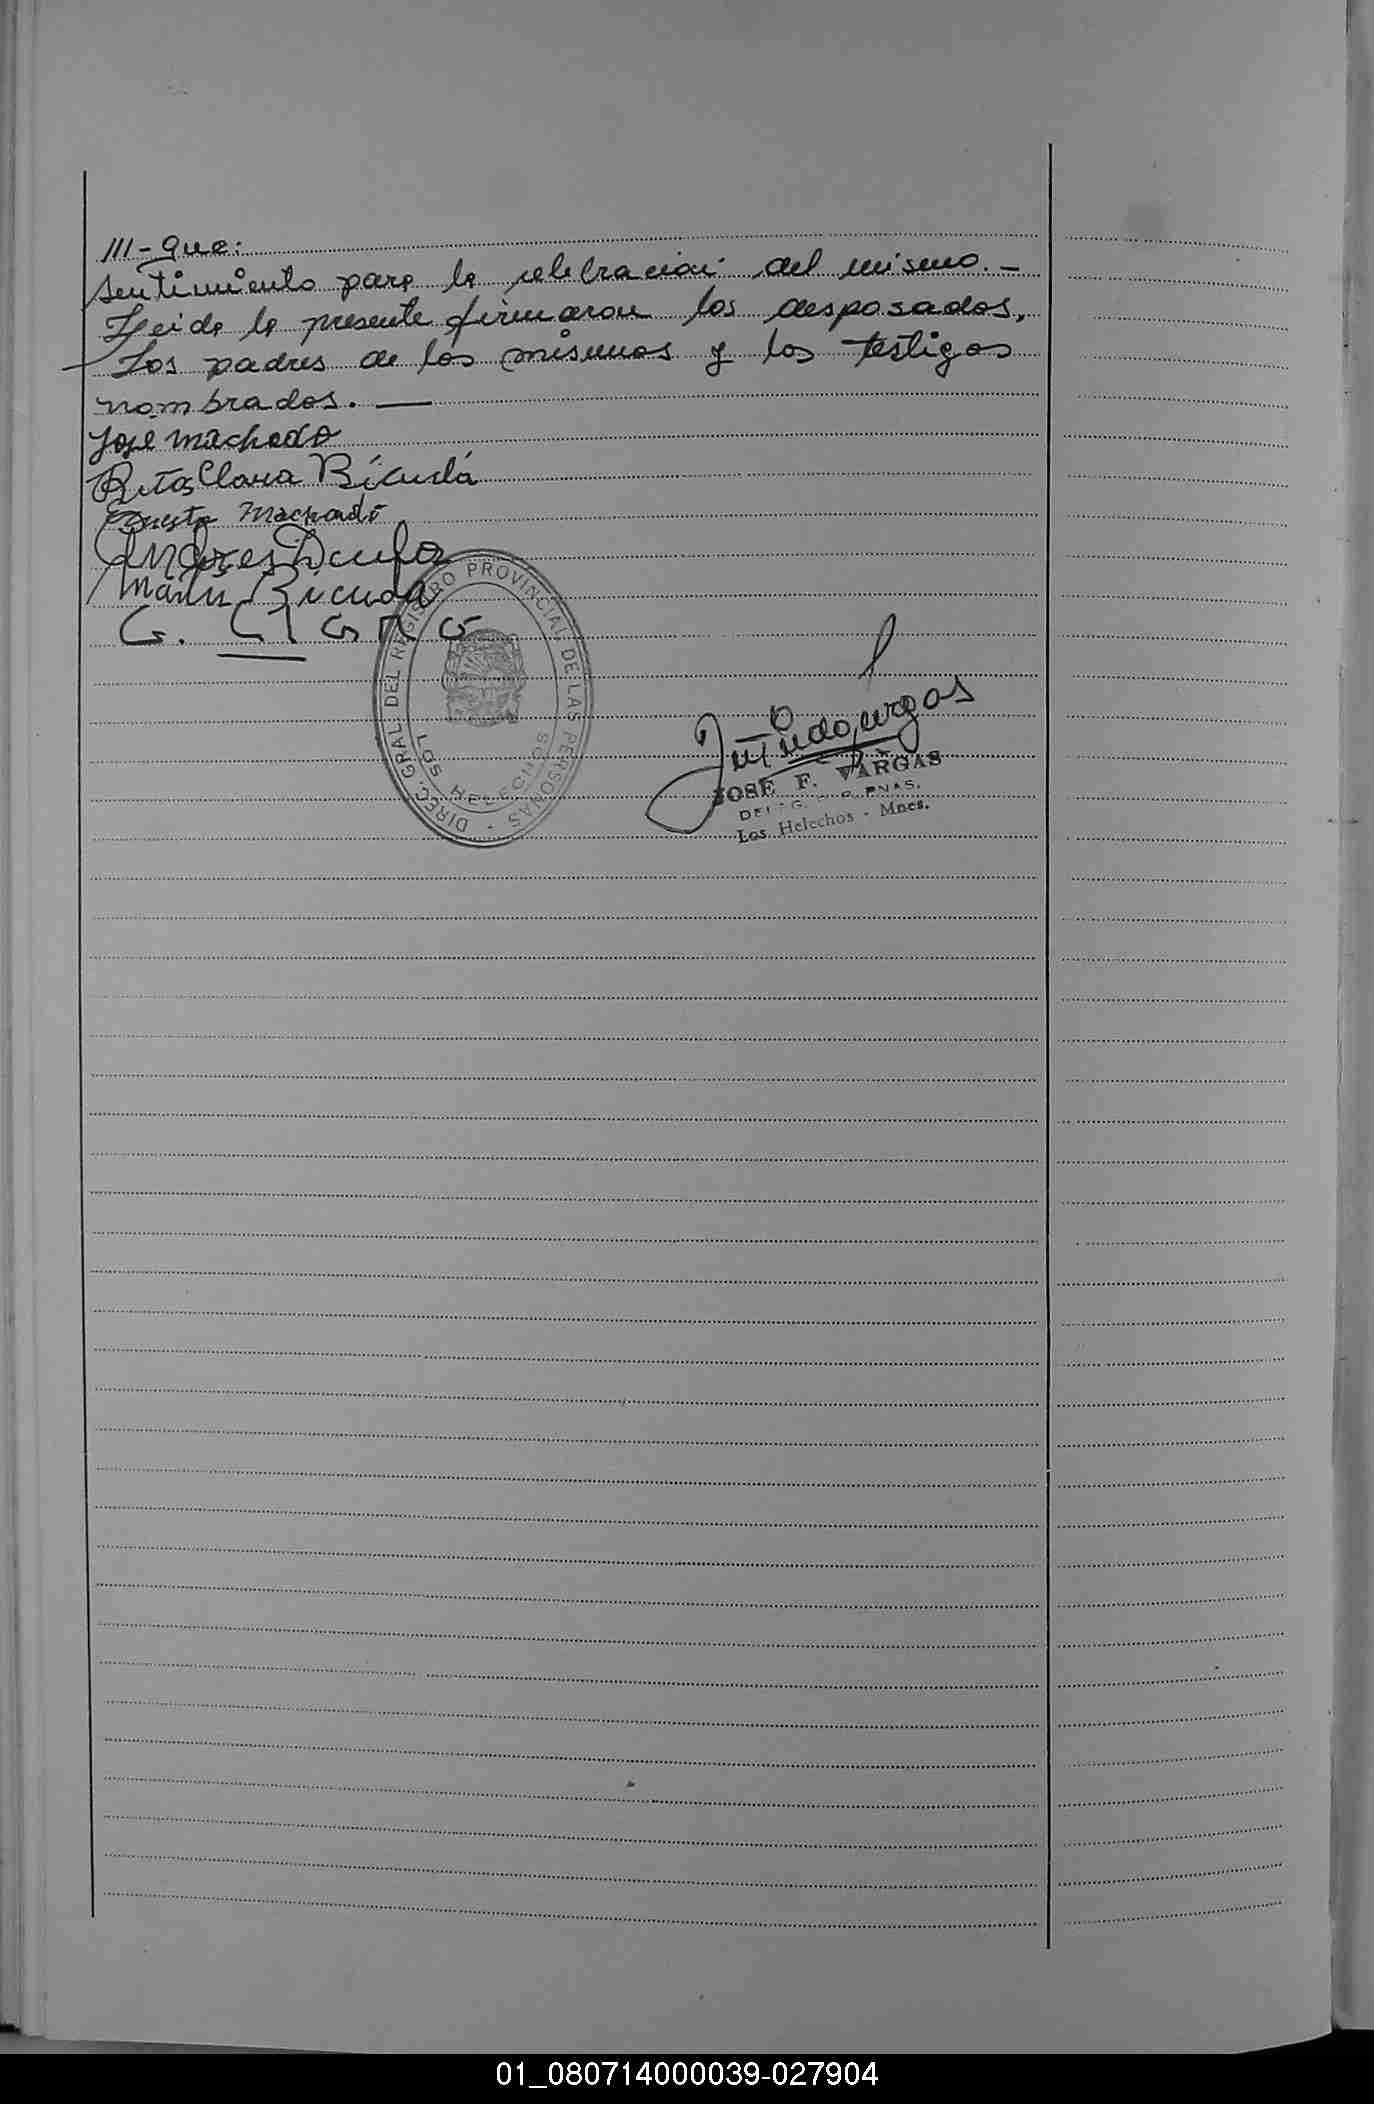 III - que:
sentimiento para la celebracion del mismo. -
Leida la presente firmaron los desposados,
Los padres de los mismos y los testigos
nombrados. —
José Machado
Rita Clara Bicudá
Ernesto Machado
Andres
María Bicuda
G.
DIRECC. GRAL. DEL REGISTRO PROVINCIAL DE LAS PERSONAS -
LOS HELECHOS
JOSE F. VARGAS
Los Helechos - Mnes.
01_080714000039-027904